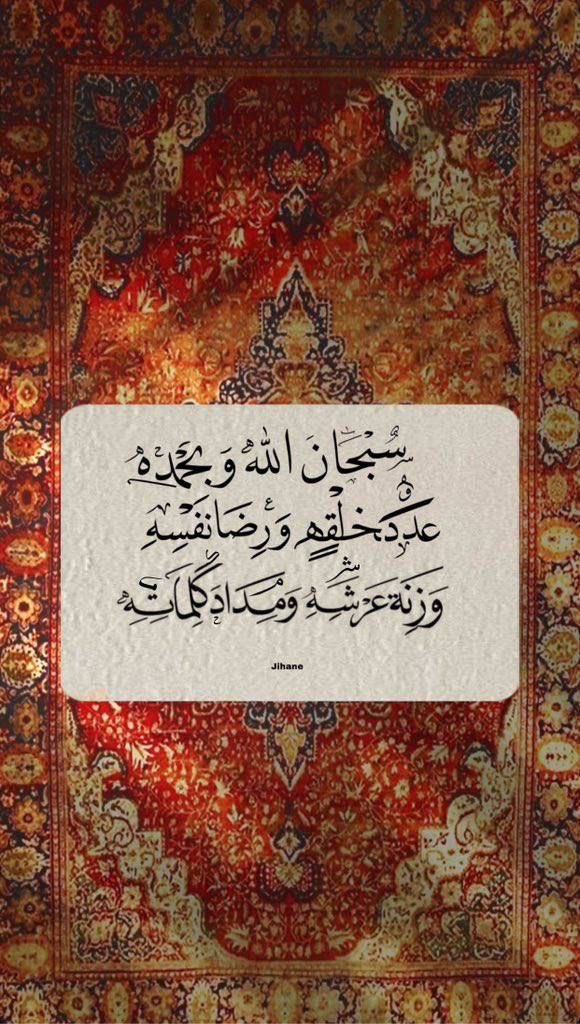 سُبْحَانَ اللهِ وَبِحَمْدِهِ
عَدَدَ خَلْقِهِ وَرِضَا نَفْسِهِ
وَزِنَةَ عَرْشِهِ وَمِدَادَ كَلِمَاتِهِ
Jihane